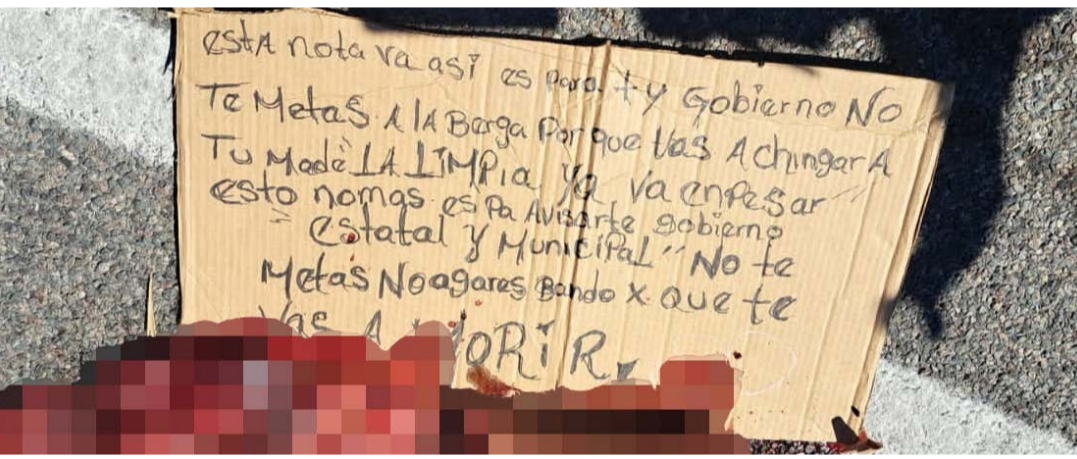 estA nota va así es para ty Gobierno No
Te Metas A lA Berga Por que Vas A chingar A
Tu Made LA LIMPia ya va enpesar
esto nomas es Pa Avisarte gobierno
estatal y Municipal "No te
Metas No agares Bando x que te
Vas A MORiR.